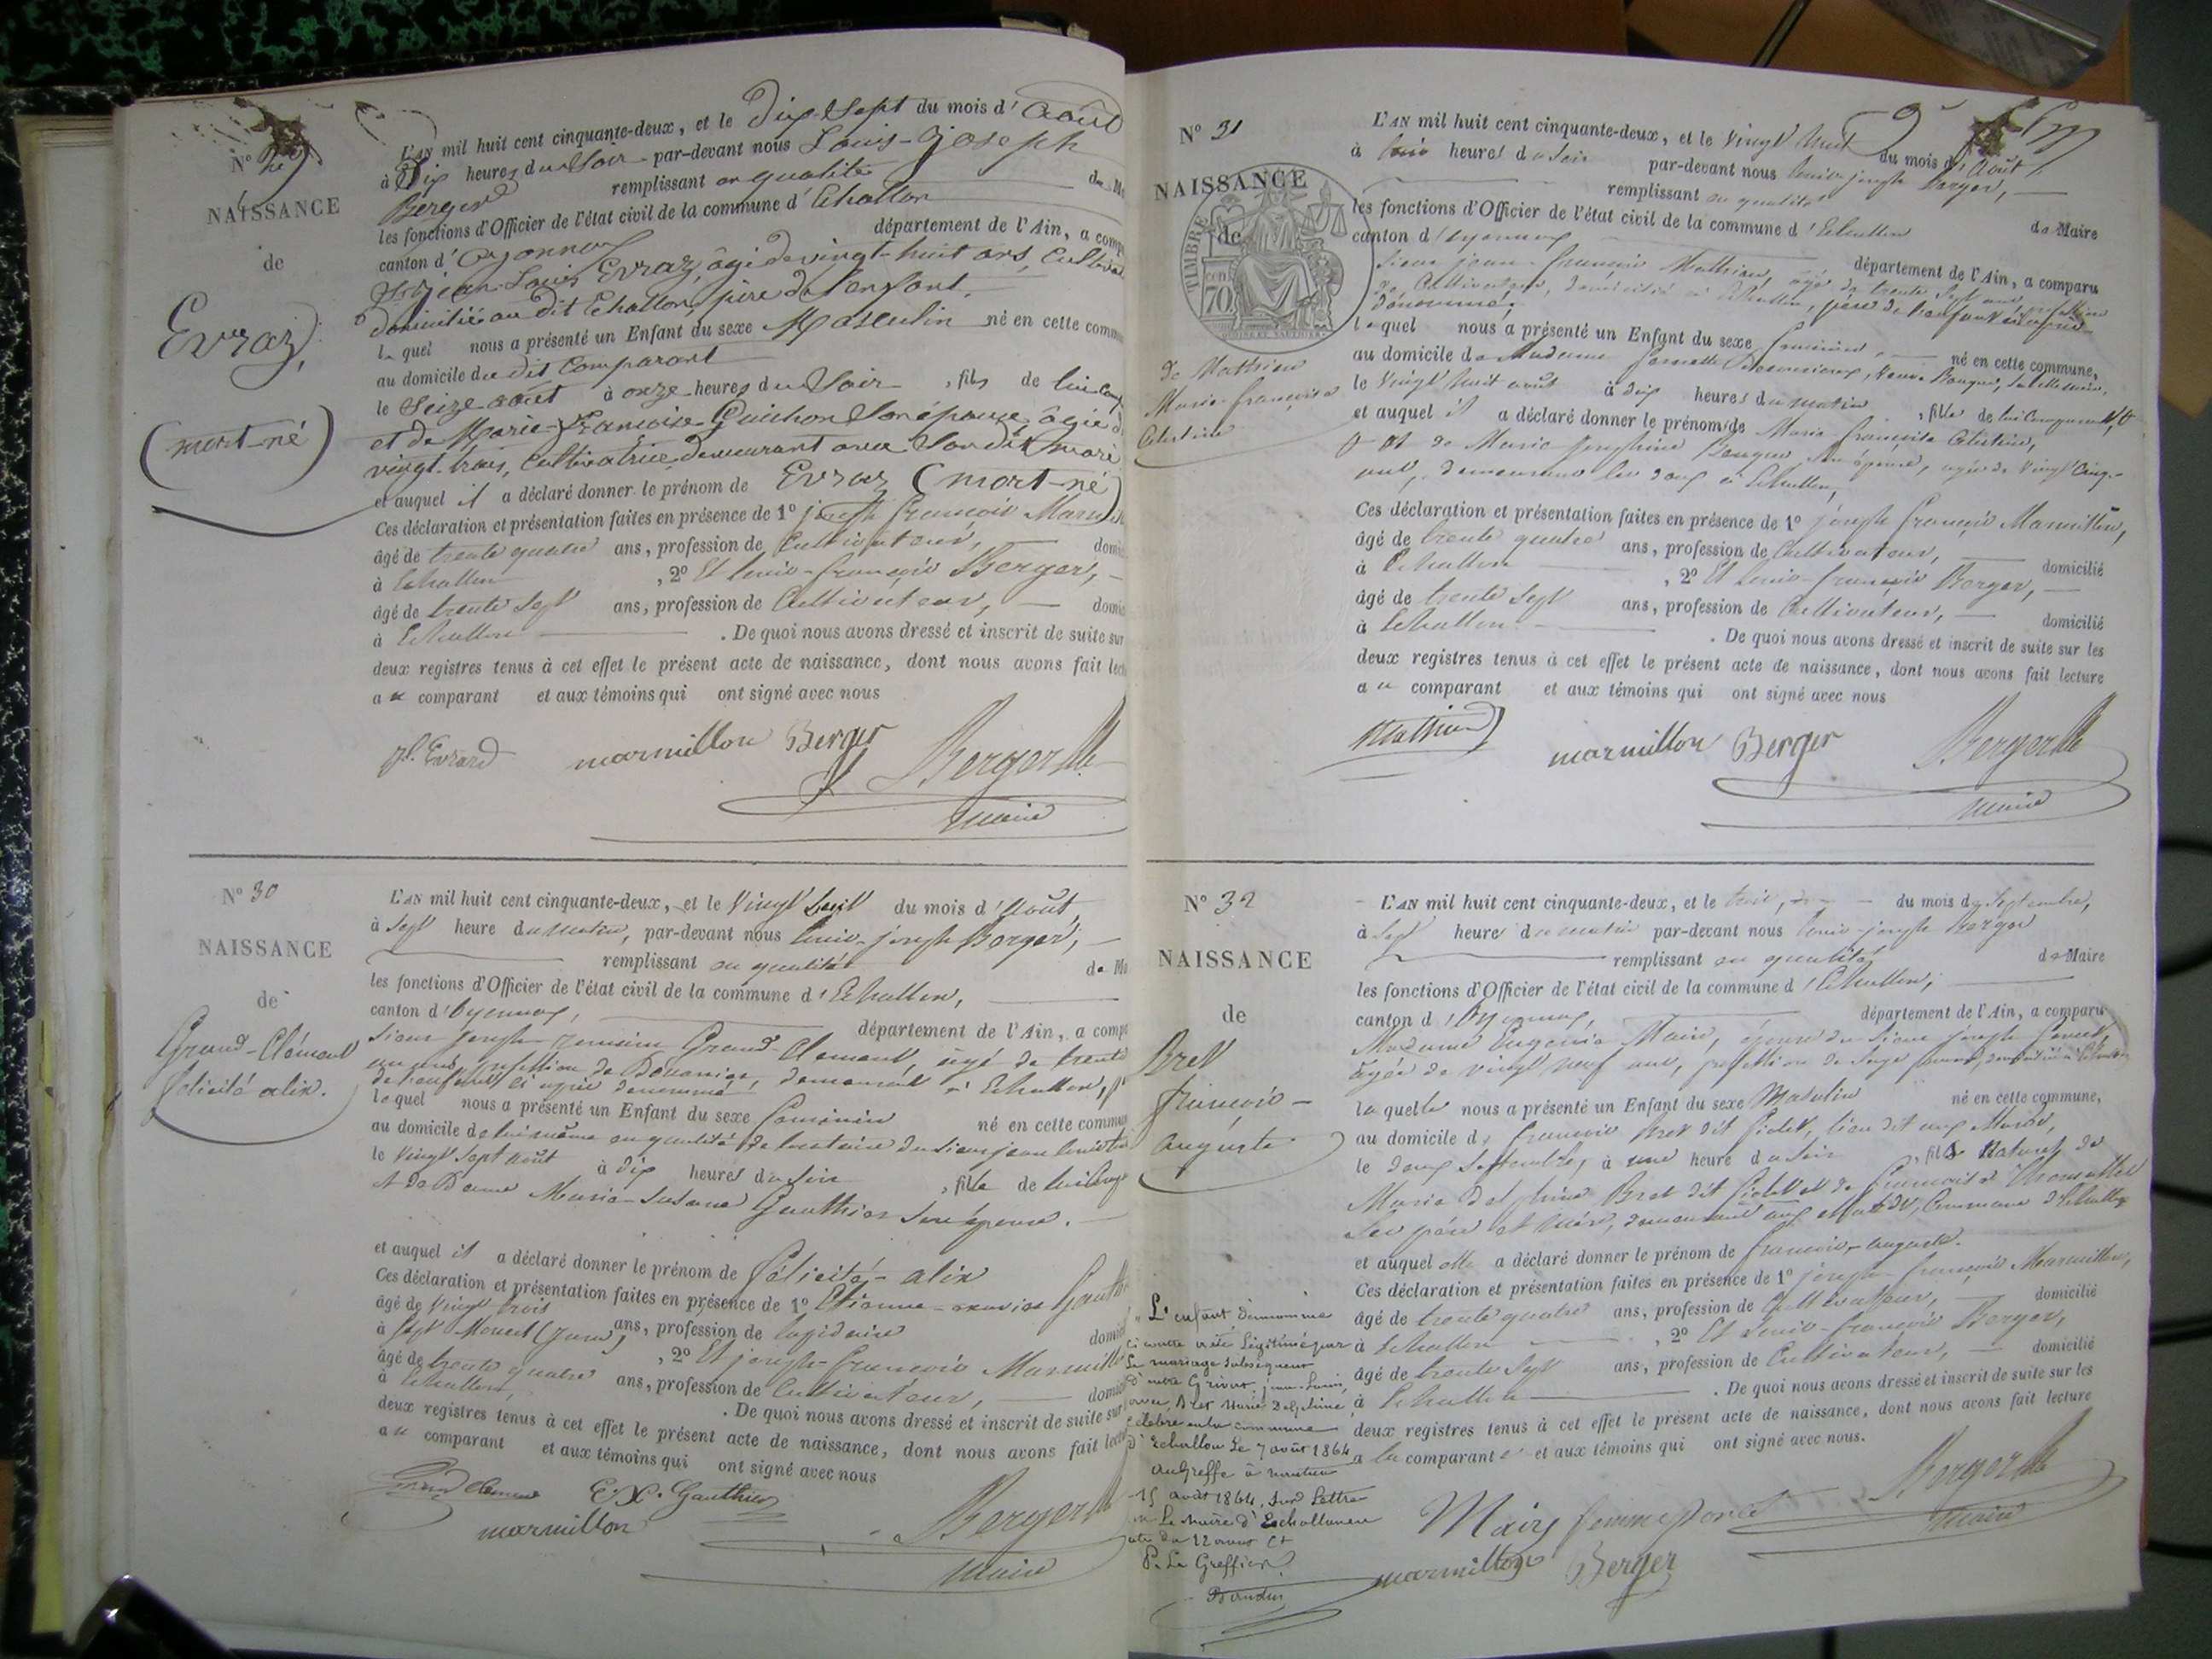 N° 29
NAISSANCE
de
Evraz,
(mort-né)
L'AN mil huit cent cinquante-deux, et le Dix Sept du mois d'Août
à Dix heures du Soir par-devant nous Louis-Joseph
Berger remplissant en qualité de
les fonctions d'Officier de l'état civil de la commune d'Echallon
canton d'Oyonnax département de l'Ain, a
Jean-Louis Evraz, âgé de vingt-huit ans,
domicilié au dit Echallon, père de l'enfant.
lequel nous a présenté un Enfant du sexe Masculin né en cette
au domicile du dit Comparant
le Seize août à onze heures du Soir, fils de lui
et de Marie-Françoise Guichon Son épouse âgée
vingt-trois, Cultivatrice demeurant avec Son dit mari
et auquel il a déclaré donner le prénom de Evraz (mort-né)
Ces déclaration et présentation faites en présence de 1° joseph françois
âgé de trente quatre ans, profession de Cultivateur,
à Echallon, 2° Et louis-françois Berger,
âgé de trente Sept ans, profession de Cultivateur,
à Echallon. De quoi nous avons dressé et inscrit de suite sur
deux registres tenus à cet effet le présent acte de naissance, dont nous avons fait
au comparant et aux témoins qui ont signé avec nous
Evrard marmillon Berger Berger
Maire
N° 30
NAISSANCE
de
Grand-Clément
félicité alix.
L'AN mil huit cent cinquante-deux, et le Vingt huit du mois d'Août,
à Sept heure du matin, par-devant nous louis-joseph Berger,
remplissant en qualité de
les fonctions d'Officier de l'état civil de la commune d'Echallon,
canton d'Oyonnax, département de l'Ain, a
Sieur joseph romain Grand-Clément, âgé de trente
un ans, profession de Douanier, demeurant à Echallon,
de l'enfant ci après dénommé,
lequel nous a présenté un Enfant du sexe féminin né en cette
au domicile de lui même en qualité de locataire du Sieur jean
le Vingt Sept août à dix heures du Soir, fille de lui
et de Dame Marie-Susane Gauthier Son épouse.
et auquel il a déclaré donner le prénom de félicité-alix
Ces déclaration et présentation faites en présence de 1° Etienne-xavier
âgé de vingt trois ans, profession de lapidaire
à Sept Moncel (Jura), 2° Et joseph-françois
âgé de trente quatre ans, profession de Cultivateur,
à Echallon, . De quoi nous avons dressé et inscrit de suite sur
deux registres tenus à cet effet le présent acte de naissance, dont nous avons fait
au comparant et aux témoins qui ont signé avec nous
Grand Clément E.X. Gauthier
marmillon Berger
Maire
N° 31
NAISSANCE
de
TIMBRE
70
de Mathieu
Marie-françoise
Célestine
L'AN mil huit cent cinquante-deux, et le Vingt huit du mois d'Août
à trois heures du Soir par-devant nous louis-joseph Berger,
remplissant en qualité de Maire
les fonctions d'Officier de l'état civil de la commune d'Echallon
canton d'Oyonnax département de l'Ain, a comparu
Sieur jean-françois Mathieu, âgé de trente Sept ans, profession
de Cultivateur, domicilié à Echallon, père de l'enfant ci après
dénommé,
lequel nous a présenté un Enfant du sexe féminin, né en cette commune,
au domicile de Madame
le Vingt huit août à dix heures du matin, fille de lui comparant,
et auquel il a déclaré donner le prénom de Marie françoise Célestine,
et de Marie-joséphine Son épouse, âgée de Vingt Cinq
ans, demeurant les deux à Echallon,
Ces déclaration et présentation faites en présence de 1° joseph françois Marmillon,
âgé de trente quatre ans, profession de Cultivateur, domicilié
à Echallon, 2° Et louis-françois Berger,
âgé de trente Sept ans, profession de Cultivateur, domicilié
à Echallon. De quoi nous avons dressé et inscrit de suite sur les
deux registres tenus à cet effet le présent acte de naissance, dont nous avons fait lecture
au comparant et aux témoins qui ont signé avec nous
Mathieu marmillon Berger Berger
Maire
N° 32
NAISSANCE
de
Bret
françois-
auguste
L'AN mil huit cent cinquante-deux, et le trois, du mois de Septembre,
à Sept heure du matin par-devant nous louis-joseph Berger
remplissant en qualité de Maire
les fonctions d'Officier de l'état civil de la commune d'Echallon,
canton d'Oyonnax, département de l'Ain, a comparu
Madame Eugénie épouse du Sieur joseph
âgée de vingt neuf ans, profession de Sage femme, domiciliée à Echallon
laquelle nous a présenté un Enfant du sexe Masculin né en cette commune,
au domicile de françois Bret dit lieu dit aux
le deux Septembre, à une heure du Soir, fils Naturel de
Marie delphine Bret dit et de françoise
Ses père et mère, demeurant aux Commune d'Echallon
et auquel elle a déclaré donner le prénom de françois-auguste.
Ces déclaration et présentation faites en présence de 1° joseph françois Marmillon,
âgé de trente quatre ans, profession de Cultivateur, domicilié
à Echallon, 2° Et louis-françois Berger,
âgé de trente Sept ans, profession de Cultivateur, domicilié
à Echallon. De quoi nous avons dressé et inscrit de suite sur les
deux registres tenus à cet effet le présent acte de naissance, dont nous avons fait lecture
a la comparante et aux témoins qui ont signé avec nous.
Mairy femme Poncet Berger
Maire
marmillon Berger
L'enfant dénommé
ci contre a été Légitimé par
Le mariage subséquent
d'entre jean-Louis,
avec Bret Marie Delphine,
célébré en la commune
d'Echallon Le 7 août 1864
au Greffe à nantua
15 août 1864, sur Lettre
Le maire d'Echallon en
date du 12 août
P. Le Greffier